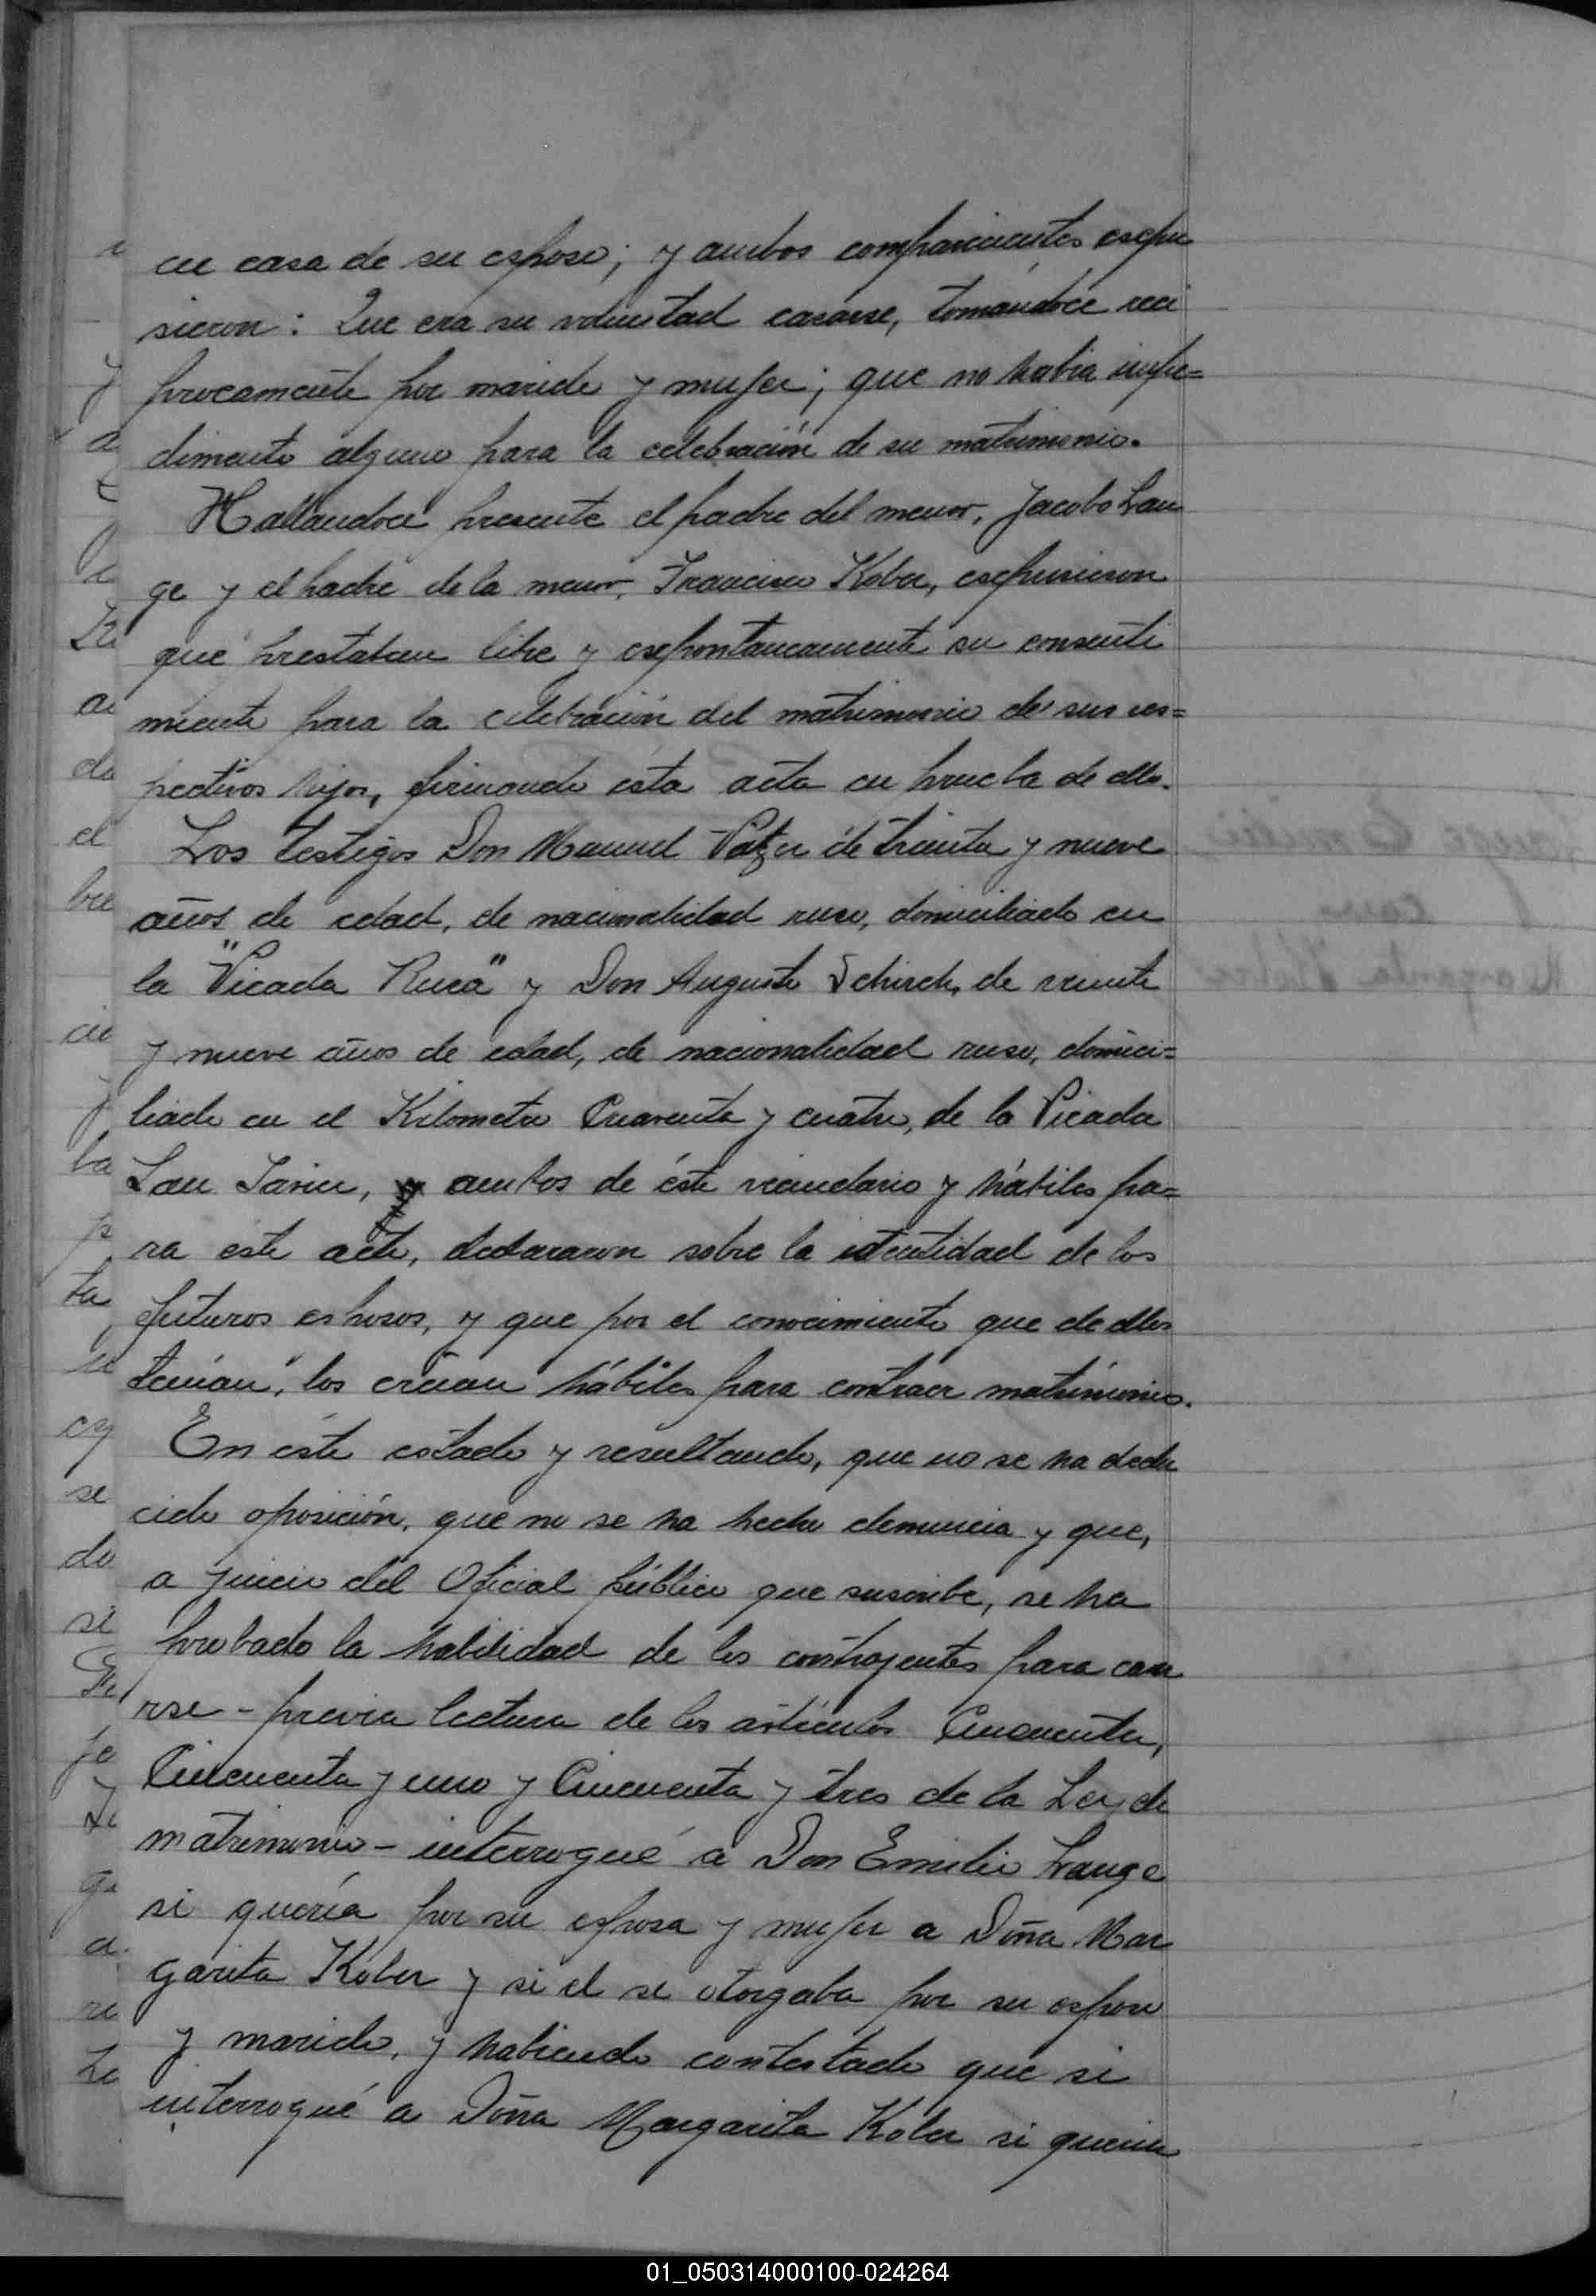 en casa de su esposo; y ambos comparecientes espu
sieron: Que era su voluntad casarse, tomándoce reci
procamente por marido y mujer; que no habia impe=
dimento alguno para la celebración de su matrimonio.
Hallandoce presente el padre del menor, Jacobo Lan
ge y el padre de la menor, Francisco Kober, espusieron
que prestaban libre y espontaneamente su consenti
miento para la celebración del matrimonio de sus res=
pectivos hijos, firmando esta acta en prueba de ello.
Los testigos Don Manuel Patzer de treinta y nueve
años de edad, de nacionalidad ruso, domiciliado en
la "Picada Rusa" y Don Augusto Schirch, de veinte
y nueve años de edad, de nacionalidad ruso, domici=
liado en el Kilometro Cuarenta y cuatro, de la Picada
San Javier, y ambos de éste vecindario y hábiles pa=
ra este acto, declararon sobre la identidad de los
futuros esposos, y que por el conocimiento que de ellos
tenían, los creían hábiles para contraer matrimonio.
En éste estado y resultando, que no se ha dedu
cido oposición, que no se ha hecho denuncia y que,
a juicio del Oficial público que suscribe, se ha
probado la habilidad de los contrayentes para casa
rse - previa lectura de los artículos Cincuenta,
Cincuenta y uno y Cincuenta y tres de la Ley de
matrimonio - interrogué a Don Emilio Lange
si quería por su esposa y mujer a Doña Mar
garita Kober y si el se otorgaba por su esposo
y marido, y habiendo contestado que si
interrogué a Doña Margarita Kober si queria
01_050314000100-024264